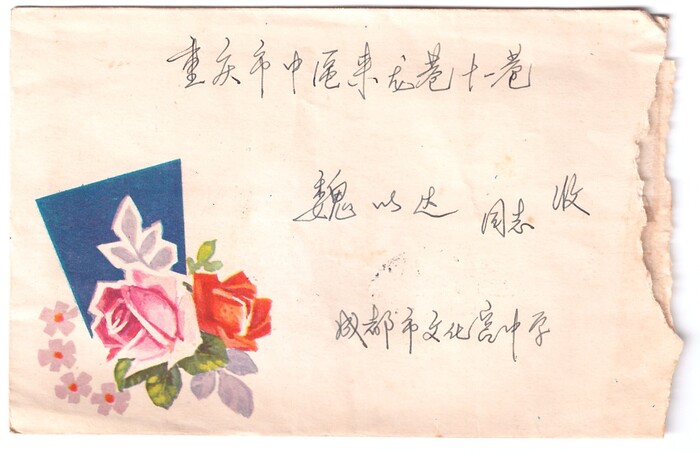 重庆市中区来龙巷十一巷
魏以达 同志 收
成都市文化宫中学